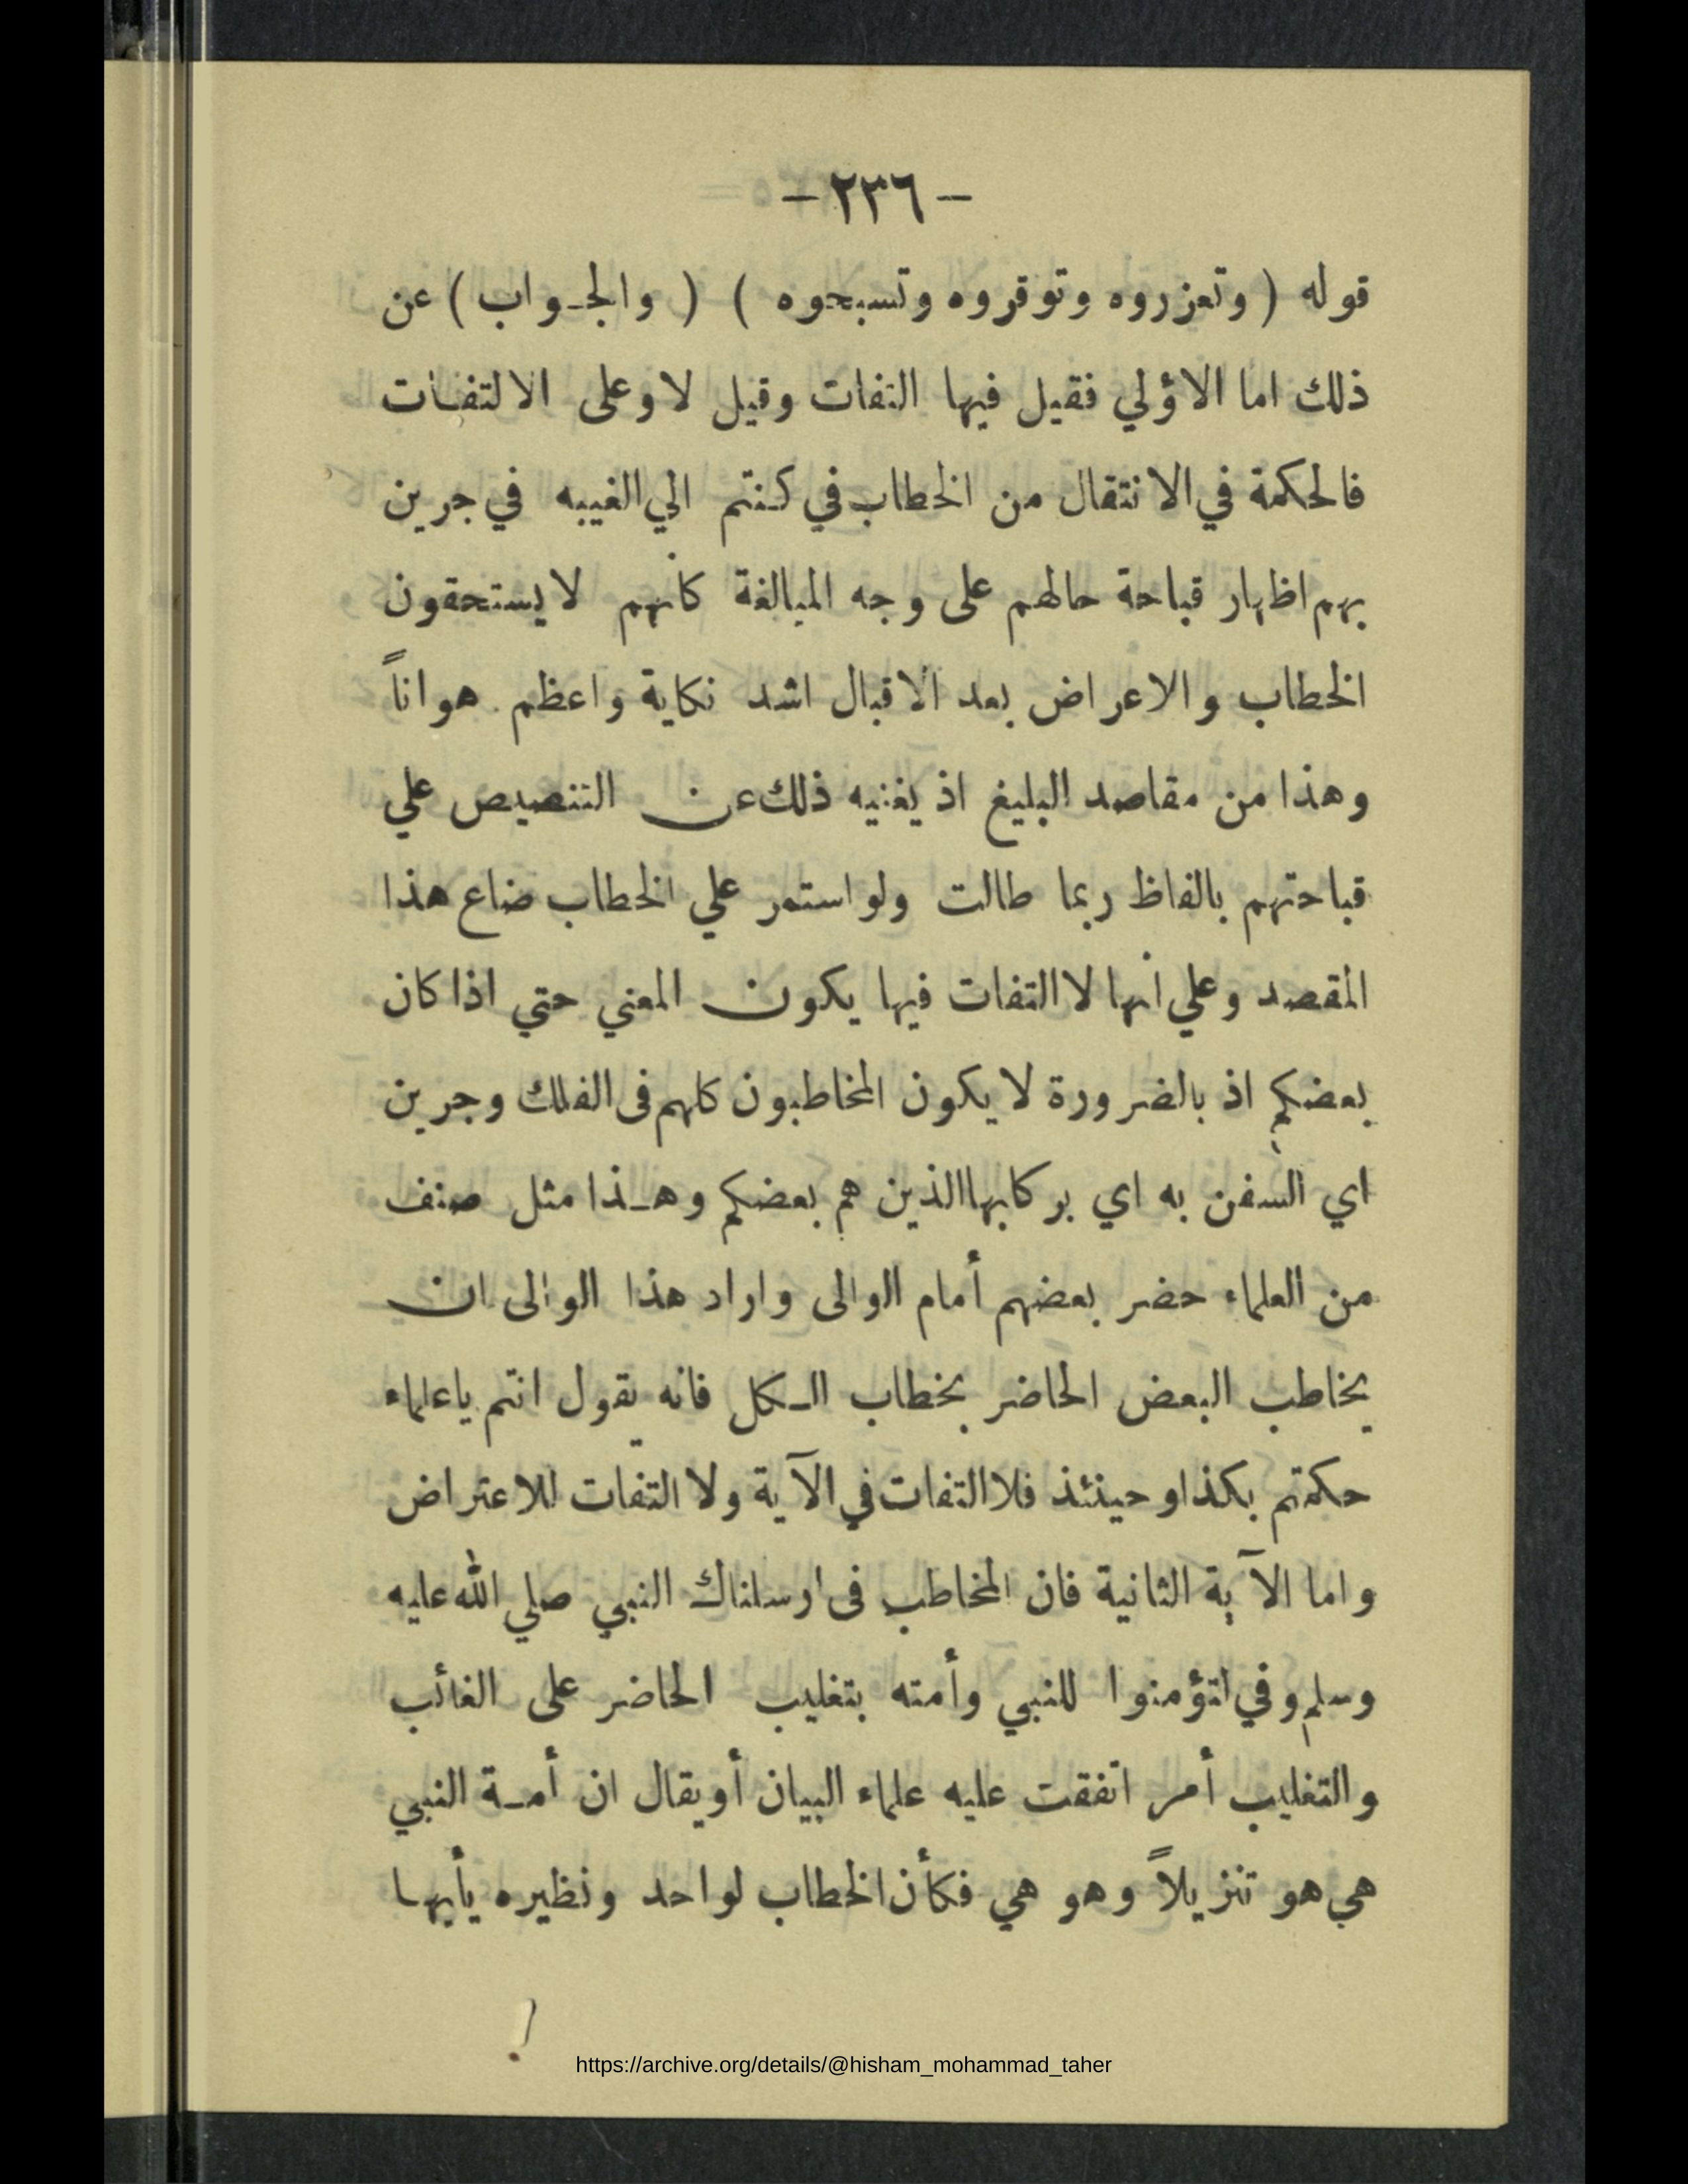 - ٢٣٦ -
قوله ( وتعزروه وتوقروه وتسبحوه ) ( والجـواب ) عن
ذلك اما الاؤلي فقيل فيها التفات وقيل لا وعلى الالتفـات
فالحكمة في الانتقال من الخطاب في كنتم الي الغيبه في جرين
بهم اظهار قباحة حالهم على وجه المبالغة كأنهم لا يستحقون
الخطاب والاعراض بعد الاقبال اشد نكاية واعظم هواناً
وهذا من مقاصد البليغ اذ يغنيه ذلك عن التنصيص علي
قباحتهم بالفاظ ربما طالت ولو استمر علي الخطاب ضاع هذا
المقصد وعلي انها لا التفات فيها يكون المعني حتي اذا كان
بعضكم اذ بالضرورة لا يكون المخاطبون كلهم فى الفلك وجرين
اي السفن به اي بركابها الذين هم بعضكم وهـذا مثل صنف
من العلماء حضر بعضهم أمام الوالى واراد هذا الوالى ان
يخاطب البعض الحاضر بخطاب الـكل فانه يقول انتم ياعلماء
حكمتم بكذا وحينئذ فلا التفات في الآية ولا التفات للاعتراض
واما الآية الثانية فان المخاطب فى ارسلناك النبي صلي الله عليه
وسلم وفي لتؤمنوا للنبي وأمته بتغليب الحاضر على الغائب
والتغليب أمر اتفقت عليه علماء البيان أو يقال ان أمـة النبي
هي هو تنزيلاً وهو هي فكأن الخطاب لواحد ونظيره يأيها
https://archive.org/details/@hisham_mohammad_taher